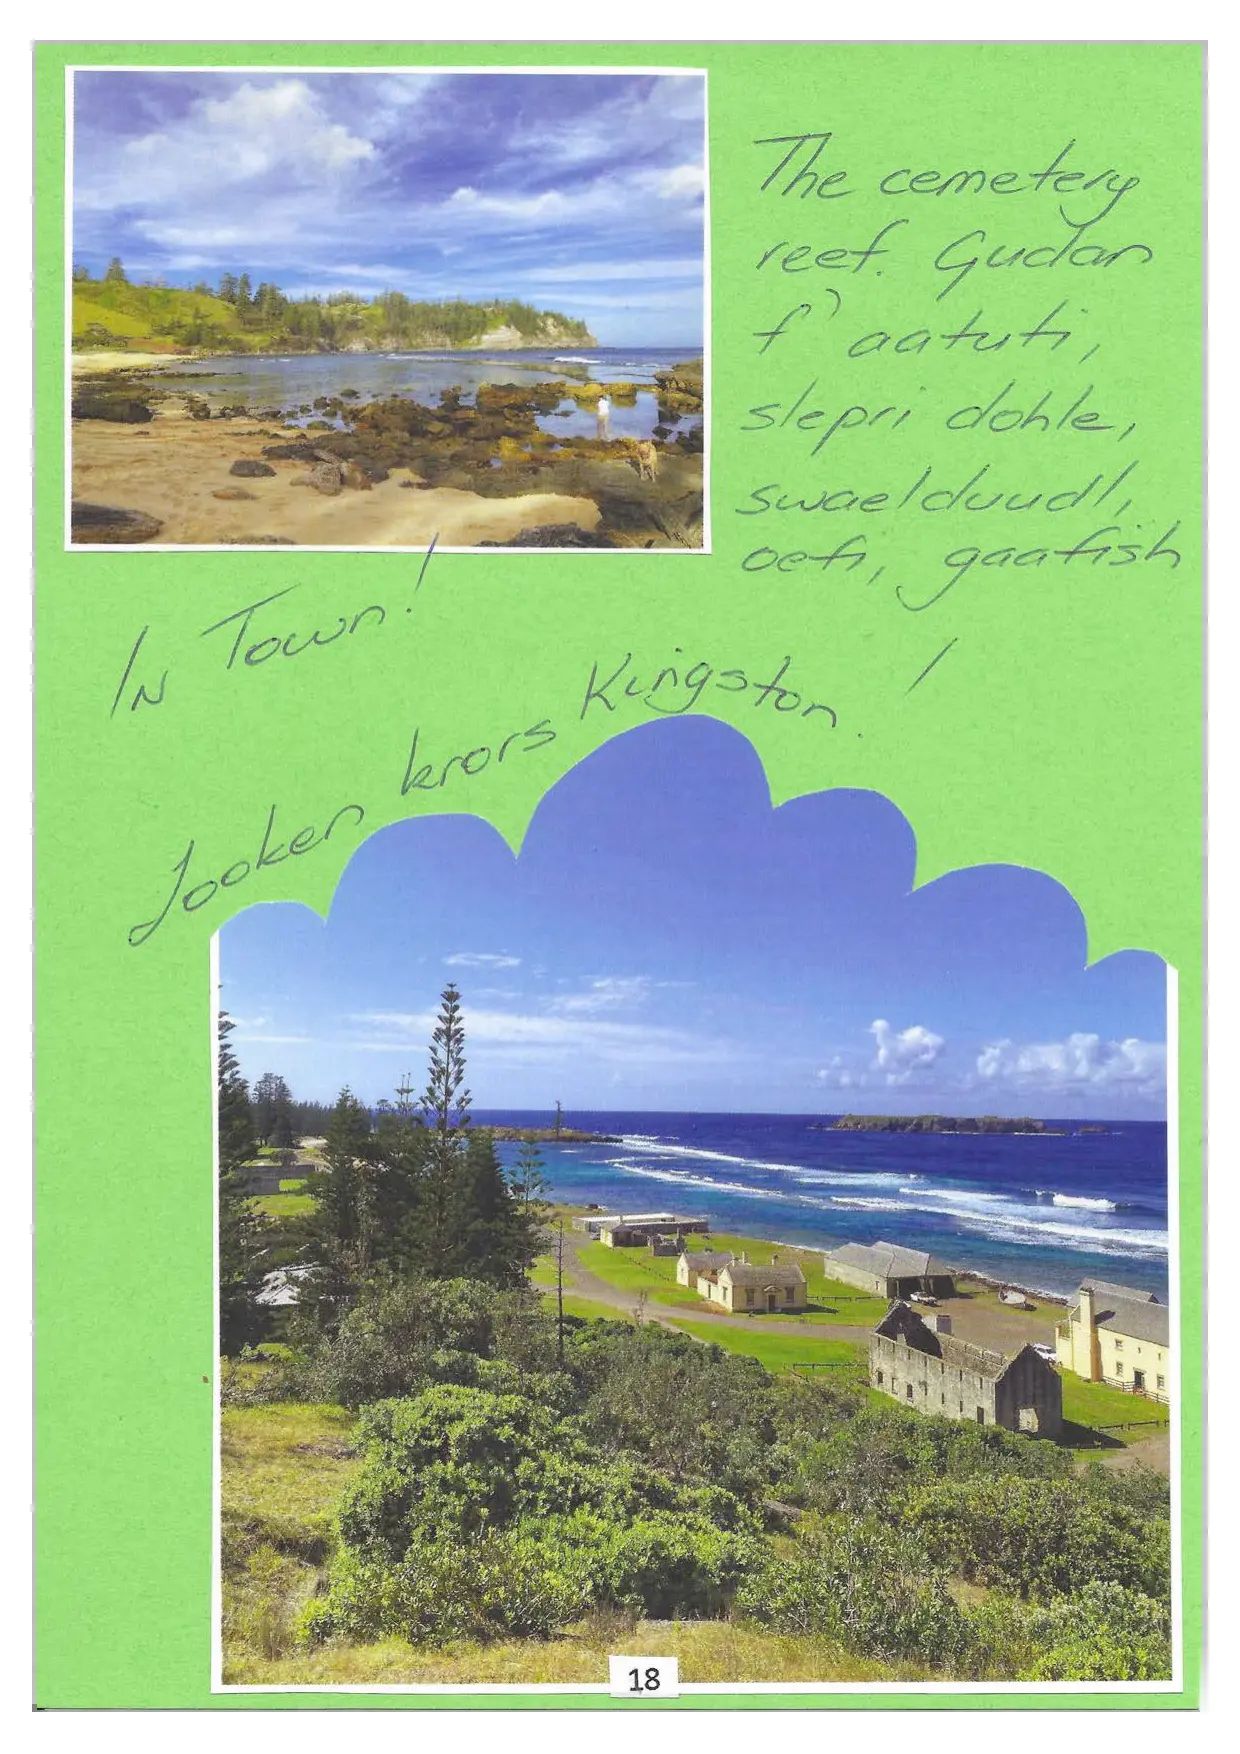 The cemetery
reef. Gudan
f' aatuti,
slepri dohle,
swaelduudl,
oefi, gaafish
In Town!
Looken krors Kingston!
18